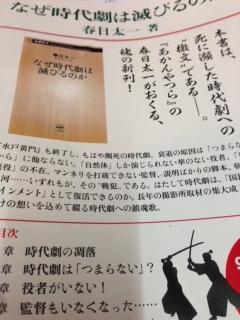 なぜ時代劇は滅びるの
春日太一 著
春日太一
なぜ時代劇は
滅びるのか
本書は、
死に瀕した時代劇への
“檄文”である――。
『あかんやつら』の
春日太一がおくる、
魂の新刊！
水戸黄門』も終了し、もはや瀕死の時代劇。衰退の原因は「つまらな
から」に他ならない。「自然体」しか演じられない単のない役者、「
悪役」の不在、マンネリを打破できない監督、説明ばかりの脚本、
河……いずれもが、その“戦犯”である。はたして時代劇は、「国民
インメント」として復活できるのか。長年の撮影所取材の集大成
けの想いを込めて綴る時代劇への鎮魂歌。
目次
章 時代劇の凋落
章 時代劇は「つまらない」？
章 役者がいない！
章 監督もいなくなった……